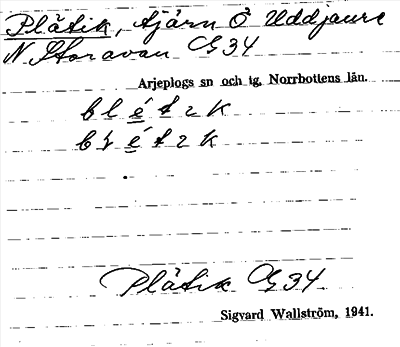 Plåtik, tjärn Ö Uddjaure
N. Storavan G 34
Arjeplogs sn och tg, Norrbottens län.
Plåtik G 34
Sigvard Wallström, 1941.